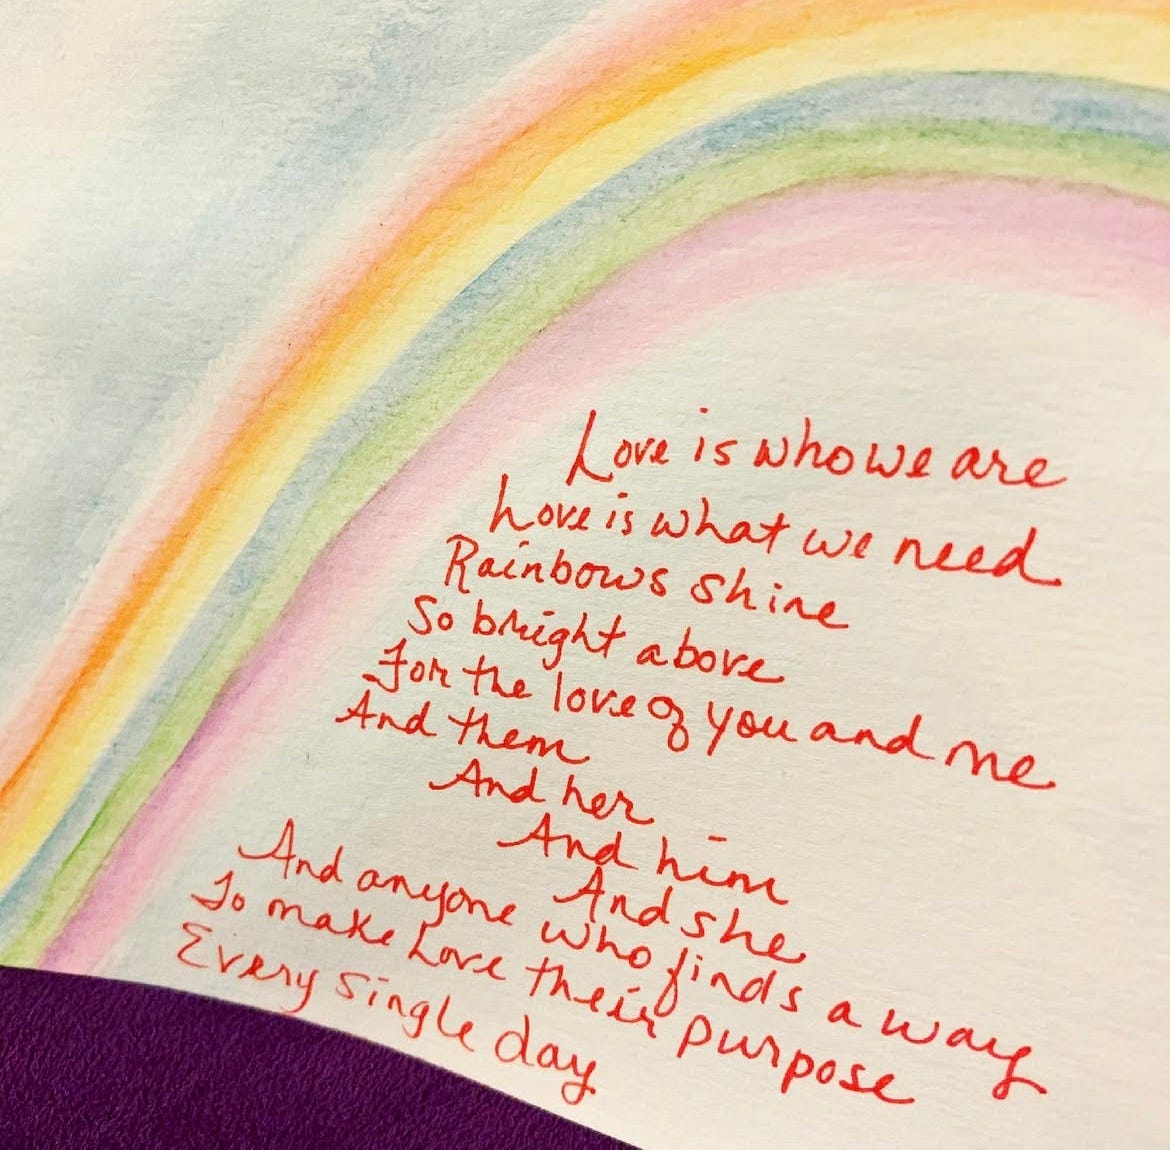 Love is who we are
Love is what we need
Rainbows shine
So bright above
For the love of you and me
And them
And her
And him
And she
And anyone who finds a way
To make Love their purpose
Every single day